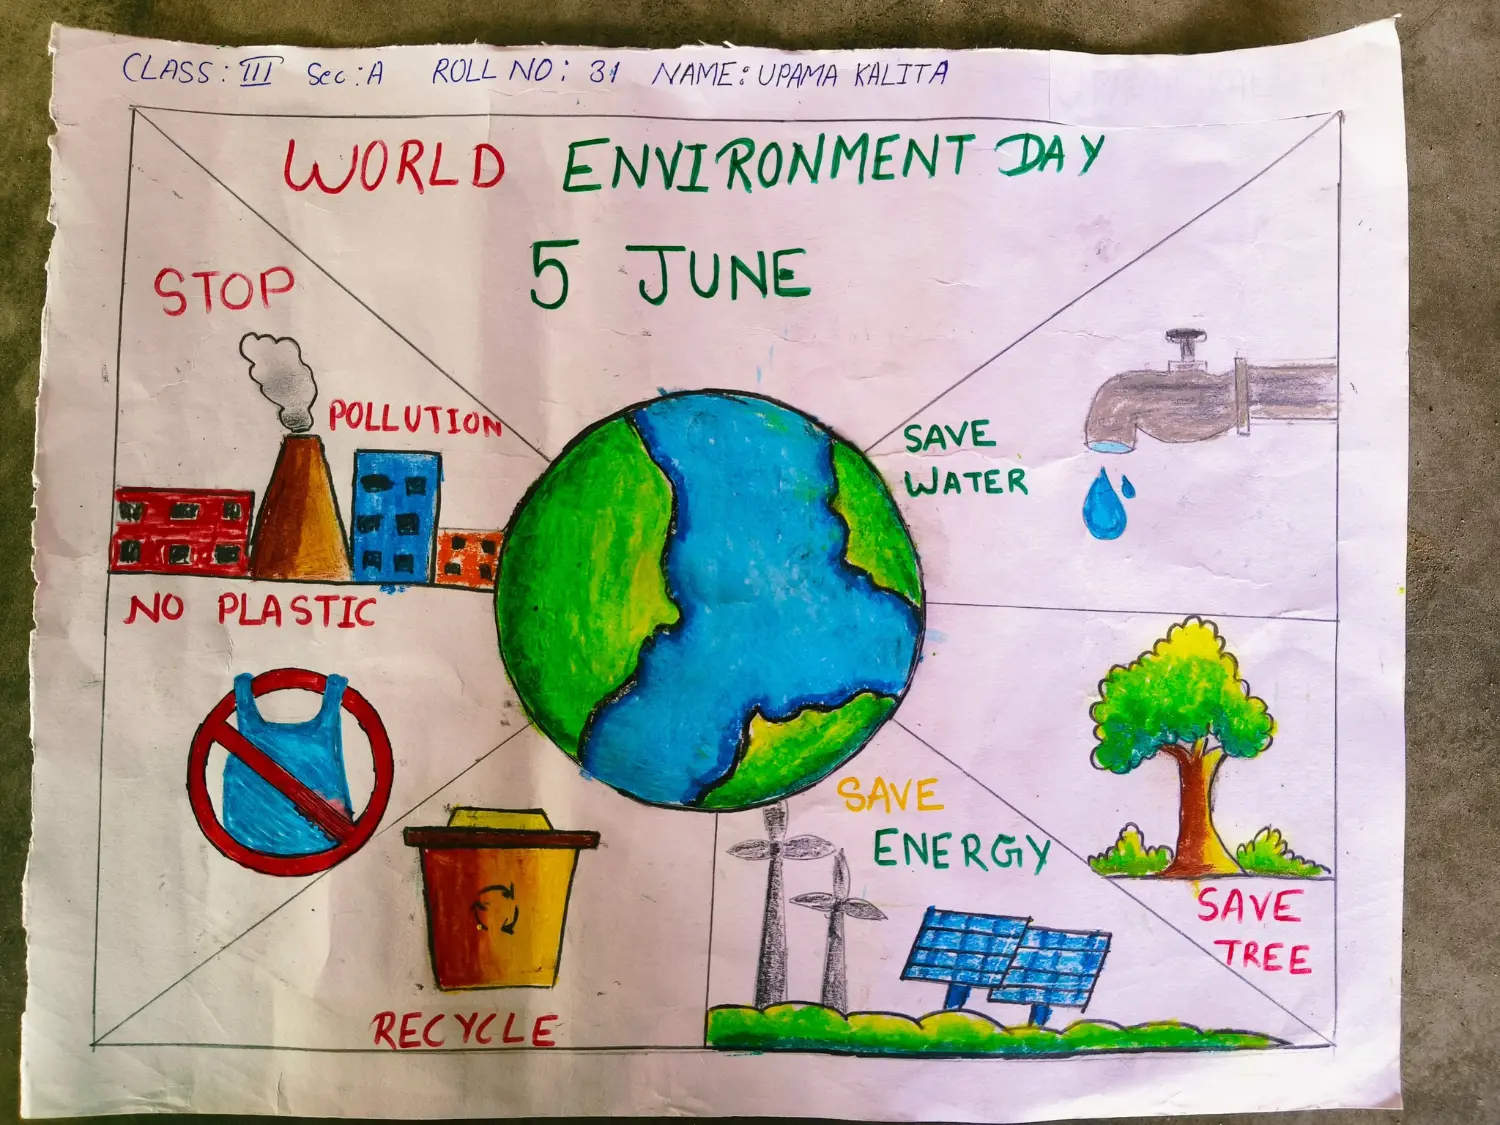 CLASS: III Sec: A ROLL NO: 31 NAME: UPAMA KALITA
WORLD ENVIRONMENT DAY
5 JUNE
STOP
POLLUTION
SAVE
WATER
NO PLASTIC
SAVE
ENERGY
SAVE
TREE
RECYCLE